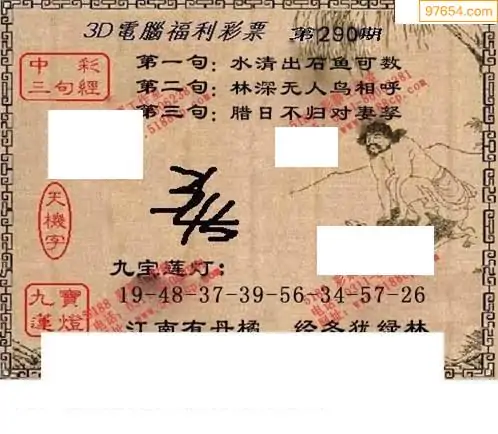 97654.com
3D電腦福利彩票 第290期
中彩三句經
第一句：水清出石鱼可数
第二句：林深无人鸟相呼
第三句：腊日不归对妻孥
天機字
九宝莲灯：
九寶蓮燈
19-48-37-39-56-34-57-26
江南有丹橘 经冬犹绿林